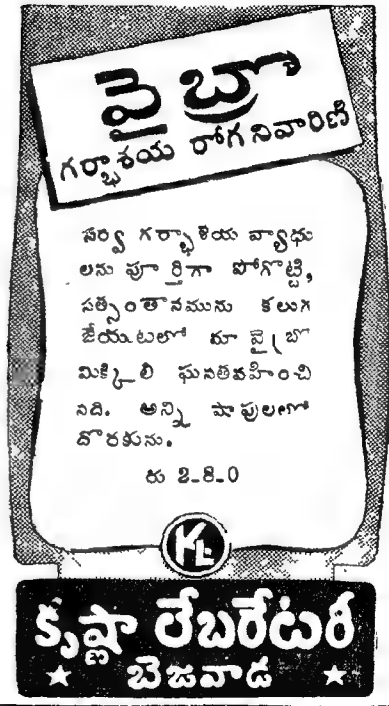 వైబ్రా
గర్భాశయ రోగ నివారిణి
సర్వ గర్భాశయ వ్యాధు
లను పూర్తిగా పోగొట్టి,
సత్సంతానమును కలుగ
జేయుటలో మా వైబ్రొ
మిక్కిలి ఘనతవహించి
నది. అన్ని షాపులలో
దొరకును.
రు 2-8-0
KL
కృష్ణా లేబరేటరీ
బెజవాడ